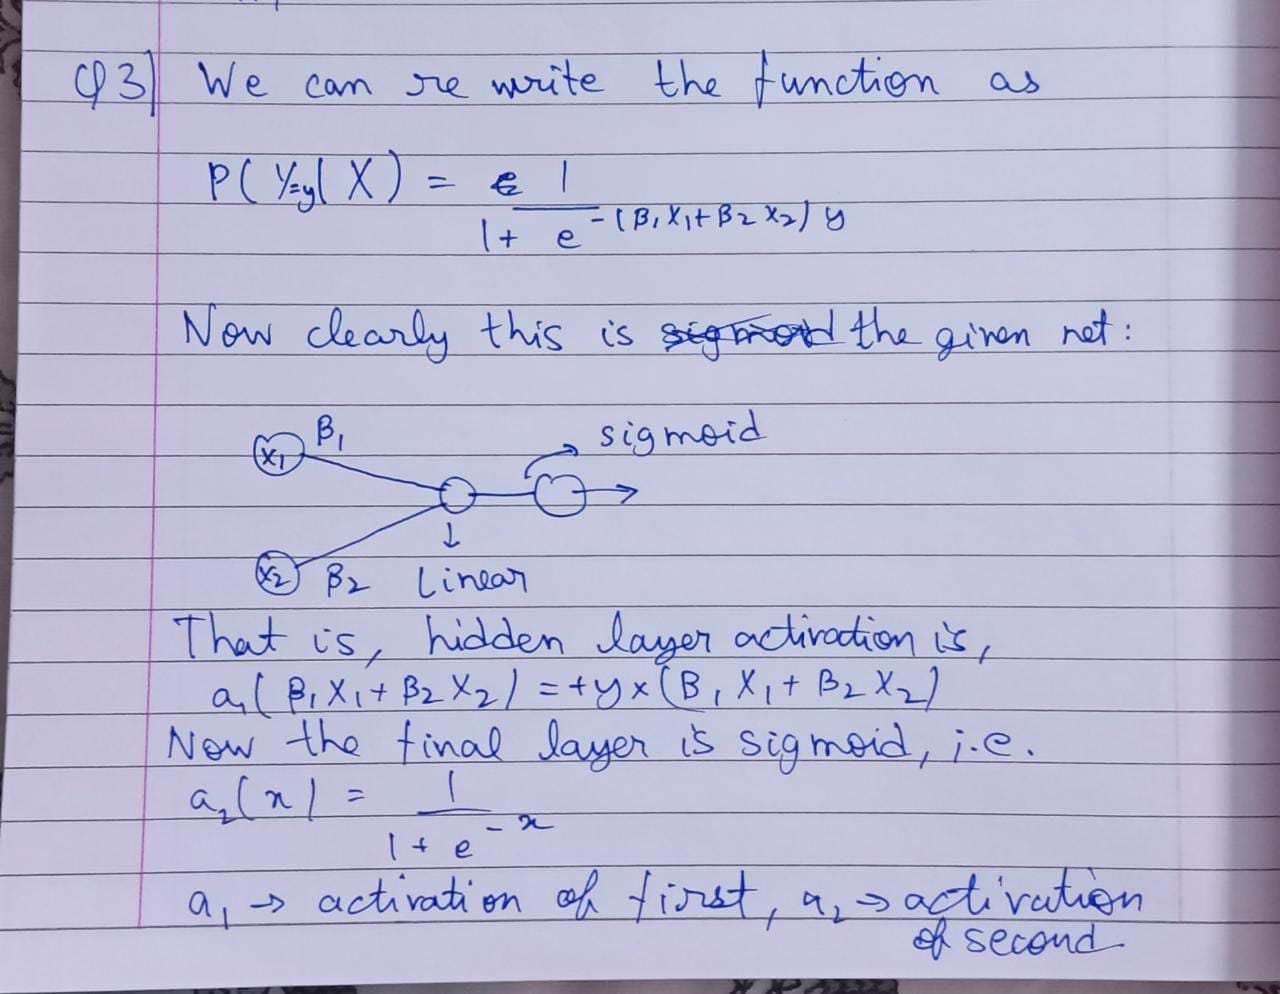 Q3) We can re write the function as
P(Y=y|X) = 1
1+ e -(β1X1+β2X2)y
Now clearly this is the given net:
β1 sigmoid
X1
X2 β2 Linear
That is, hidden layer activation is,
a1(β1X1+β2X2) = +y×(β1X1+β2X2)
Now the final layer is sigmoid, i.e.
a2(x) = 1
1+ e -x
a1 → activation of first, a2 → activation
of second